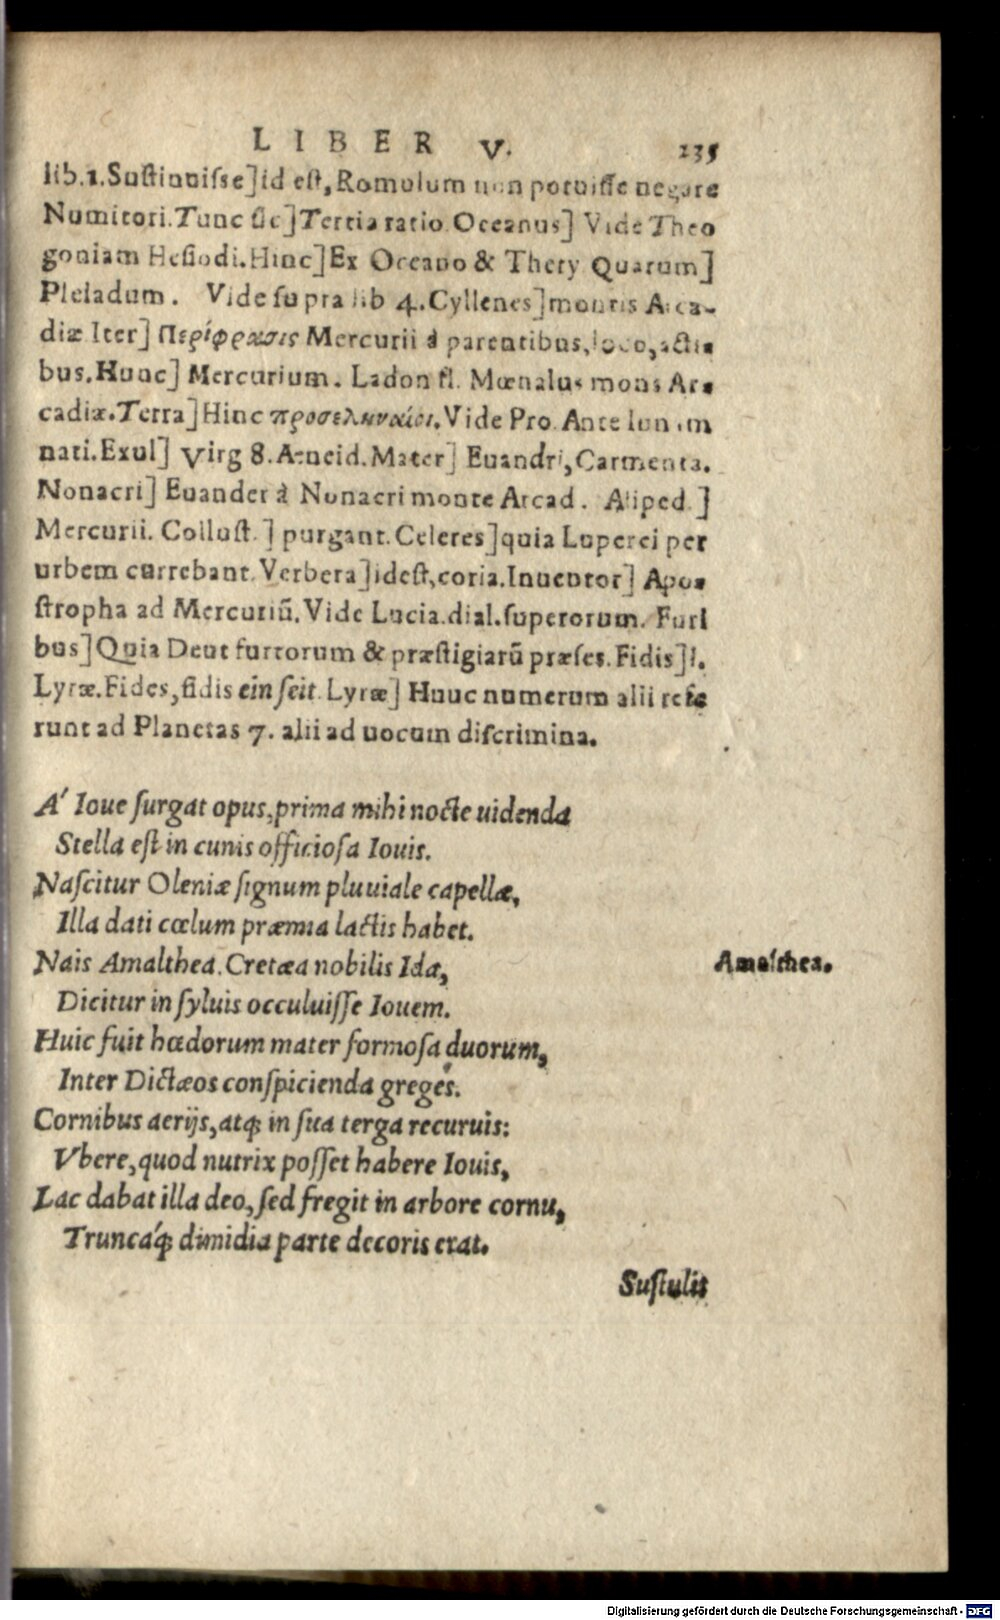 LIBER V. 235
lib.1.Sustinuisse]id est,Romulum non potuisse negare
Numitori.Tunc sic]Tertia ratio Oceanus] Vide Theo
goniam Hesiodi.Hinc]Ex Oceano & Thety Quarum]
Pleiadum. Vide supra lib 4.Cyllenes]montis Arca-
diæ Iter] Περίφρασις Mercurii à parentibus,loco,actis
bus.Hunc] Mercurium. Ladon fl. Mœnalus mons Ar-
cadiæ.Terra]Hinc προσεληναίοι.Vide Pro. Ante lunam
nati.Exul] Virg 8.Aeneid.Mater] Euandri,Carmenta.
Nonacri] Euander à Nonacri monte Arcad. Aliped.]
Mercurii. Collust.] purgant.Celeres]quia Luperci per
urbem currebant.Verbera]idest,coria.Inuentor] Apo-
stropha ad Mercuriũ.Vide Lucia.dial.superorum. Furi
bus]Quia Deut furtorum & præstigiarũ præses.Fidis]i.
Lyræ.Fides,fidis ein seit.Lyræ] Hunc numerum alii refe
runt ad Planetas 7. alii ad uocum discrimina.
A' Ioue surgat opus,prima mihi nocte uidenda
Stella est in cunis officiosa Iouis.
Nascitur Oleniæ signum pluuiale capellæ,
Illa dati cœlum præmia lactis habet.
Nais Amalthea.Cretæa nobilis Ida,
Amalthea.
Dicitur in syluis occuluisse Iouem.
Huic fuit hœdorum mater formosa duorum,
Inter Dictæos conspicienda greges.
Cornibus aerijs,atq; in sua terga recuruis:
Vbere,quod nutrix posset habere Iouis,
Lac dabat illa deo,sed fregit in arbore cornu,
Truncáq; dimidia parte decoris erat.
Sustulit
Digitalisierung gefördert durch die Deutsche Forschungsgemeinschaft - DFG